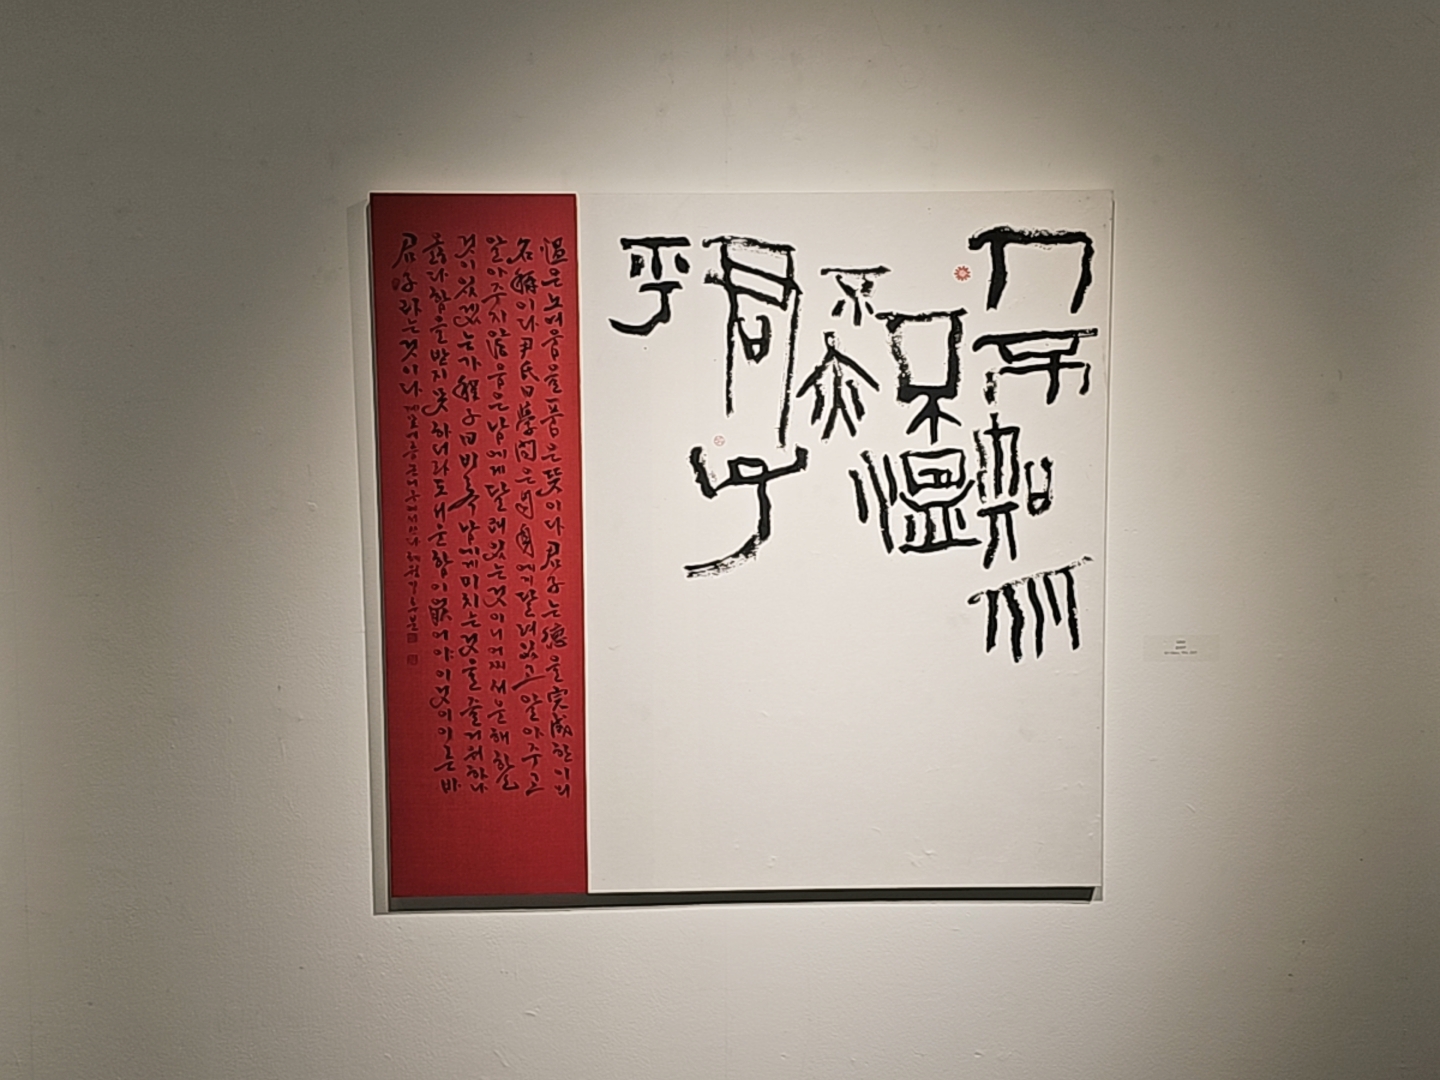 人不知而
不慍
不亦
君子
乎
慍은노여움을품은뜻이다君子는德을完成한이의
名稱이다尹氏曰學問은自身에게달려있고알아주고
알아주지않음은남에게달려있는것이니어찌서운해할
것이있겠는가程子曰비록남에게미치는것을즐거워하나
옳다함을받지못하더라도서운함이없어야이것이이른바
君子라는것이다